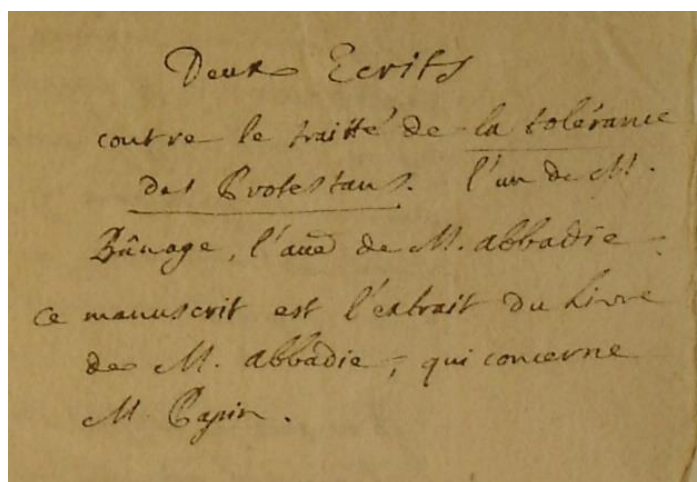 Deux Ecrits
contre le traitté de la tolérance
des Protestans. l'un de M.
Bânage, l'aũe de M. abbadie.
ce manuscrit est l'extrait du Livre
de M. abbadie, qui concerne
M. Papin.